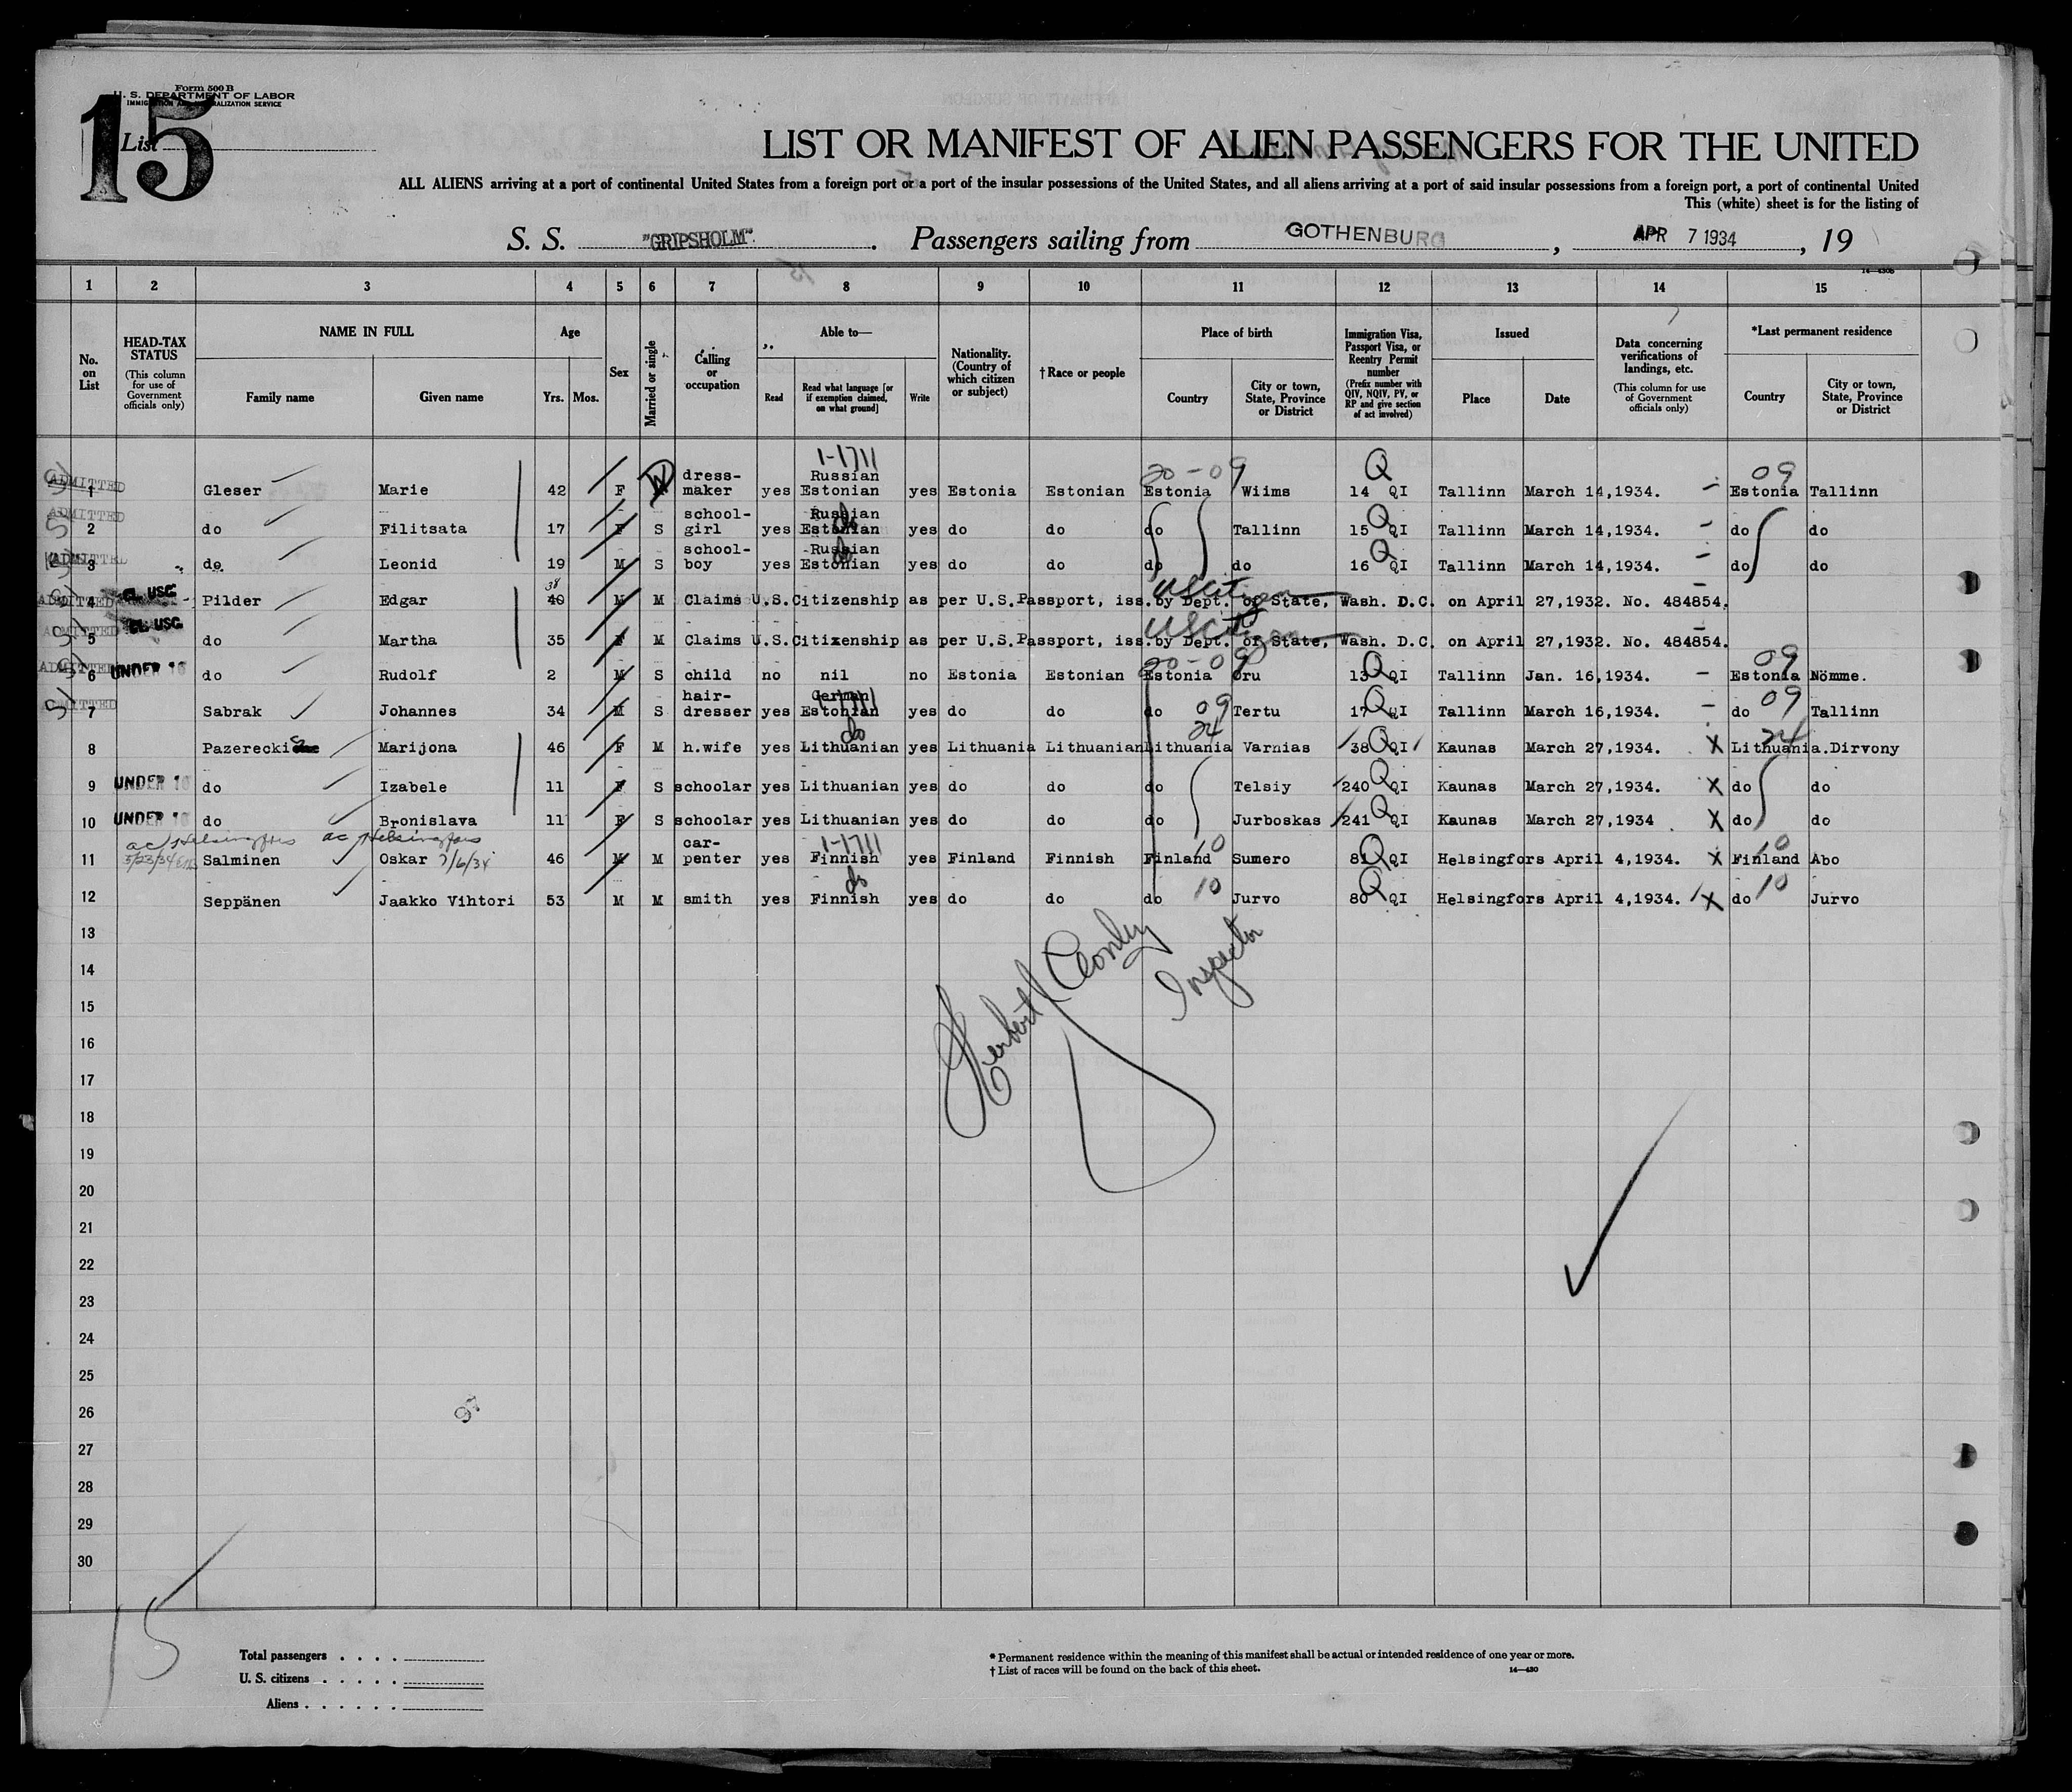 Form 500 B
U. S. DEPARTMENT OF LABOR
IMMIGRATION AND NATURALIZATION SERVICE
15
List
LIST OR MANIFEST OF ALIEN PASSENGERS FOR THE UNITED
ALL ALIENS arriving at a port of continental United States from a foreign port or a port of the insular possessions of the United States, and all aliens arriving at a port of said insular possessions from a foreign port, a port of continental United
This (white) sheet is for the listing of
S. S. "GRIPSHOLM". Passengers sailing from GOTHENBURG, APR 7 1934, 19
14—430B
1 2 3 4 5 6 7 8 9 10 11 12 13 14 15
No. on List
HEAD-TAX STATUS (This column for use of Government officials only)
NAME IN FULL
Family name Given name
Age
Yrs. Mos.
Sex
Married or single
Calling or occupation
Able to—
Read Read what language [or if exemption claimed, on what ground] Write
Nationality. (Country of which citizen or subject)
†Race or people
Place of birth
Country City or town, State, Province or District
Immigration Visa, Passport Visa, or Reentry Permit number (Prefix number with QIV, NQIV, PV, or RP and give section of act involved)
Issued
Place Date
Data concerning verifications of landings, etc. (This column for use of Government officials only)
*Last permanent residence
Country City or town, State, Province or District
1-1711 20-09 Q 09
dress- Russian
ADMITTED 1 Gleser Marie 42 F W maker yes Estonian yes Estonia Estonian Estonia Wiims 14 QI Tallinn March 14,1934. - Estonia Tallinn
school- Russian Q
ADMITTED 2 do Filitsata 17 F S girl yes Estonian do yes do do do Tallinn 15 QI Tallinn March 14,1934. - do do
school- Russian Q
ADMITTED 3 do Leonid 19 M S boy yes Estonian do yes do do do do 16 QI Tallinn March 14,1934. - do do
38 US Citizen
ADMITTED 4 CL. USC. Pilder Edgar 40 M M Claims U.S.Citizenship as per U.S.Passport, iss.by Dept. of State, Wash. D.C. on April 27,1932. No. 484854.
US Citizen
ADMITTED 5 CL. USC. do Martha 35 F M Claims U.S.Citixenship as per U.S.Passport, iss.by Dept. of State, Wash. D.C. on April 27,1932. No. 484854.
20-09 Q 09
ADMITTED 6 UNDER 16 do Rudolf 2 M S child no nil no Estonia Estonian Estonia Oru 13 QI Tallinn Jan. 16,1934. - Estonia Nömme.
hair- German 1-1711 09 Q 09
ADMITTED 7 Sabrak Johannes 34 M S dresser yes Estonian yes do do do Tertu 17 QI Tallinn March 16,1934. - do Tallinn
do 24 Q 24
8 Pazerecki Marijona 46 F M h.wife yes Lithuanian yes Lithuania Lithuanian Lithuania Varnias 38 QI Kaunas March 27,1934. X Lithuania.Dirvony
9 UNDER 16 do Izabele 11 F S schoolar yes Lithuanian yes do do do Telsiy 240 Q QI Kaunas March 27,1934. X do do
10 UNDER 16 do Bronislava 11 F S schoolar yes Lithuanian yes do do do Jurboskas 241 Q QI Kaunas March 27,1934 X do do
ac/Helsingfors ac/Helsingfors
car- 1-1711 10 Q 10
11 5/23/34 Salminen Oskar 7/6/34 46 M M penter yes Finnish yes Finland Finnish Finland Sumero 81 QI Helsingfors April 4,1934. X Finland Abo
do 10 Q 10
12 Seppänen Jaakko Vihtori 53 M M smith yes Finnish yes do do do Jurvo 80 QI Helsingfors April 4,1934. X do Jurvo
13
14
Herbert Conley
Inspector
15
16
17
18
19
20
21
22
23
24
25
26
97
27
28
29
30
15
Total passengers
U. S. citizens
Aliens
* Permanent residence within the meaning of this manifest shall be actual or intended residence of one year or more.
† List of races will be found on the back of this sheet.
14—430